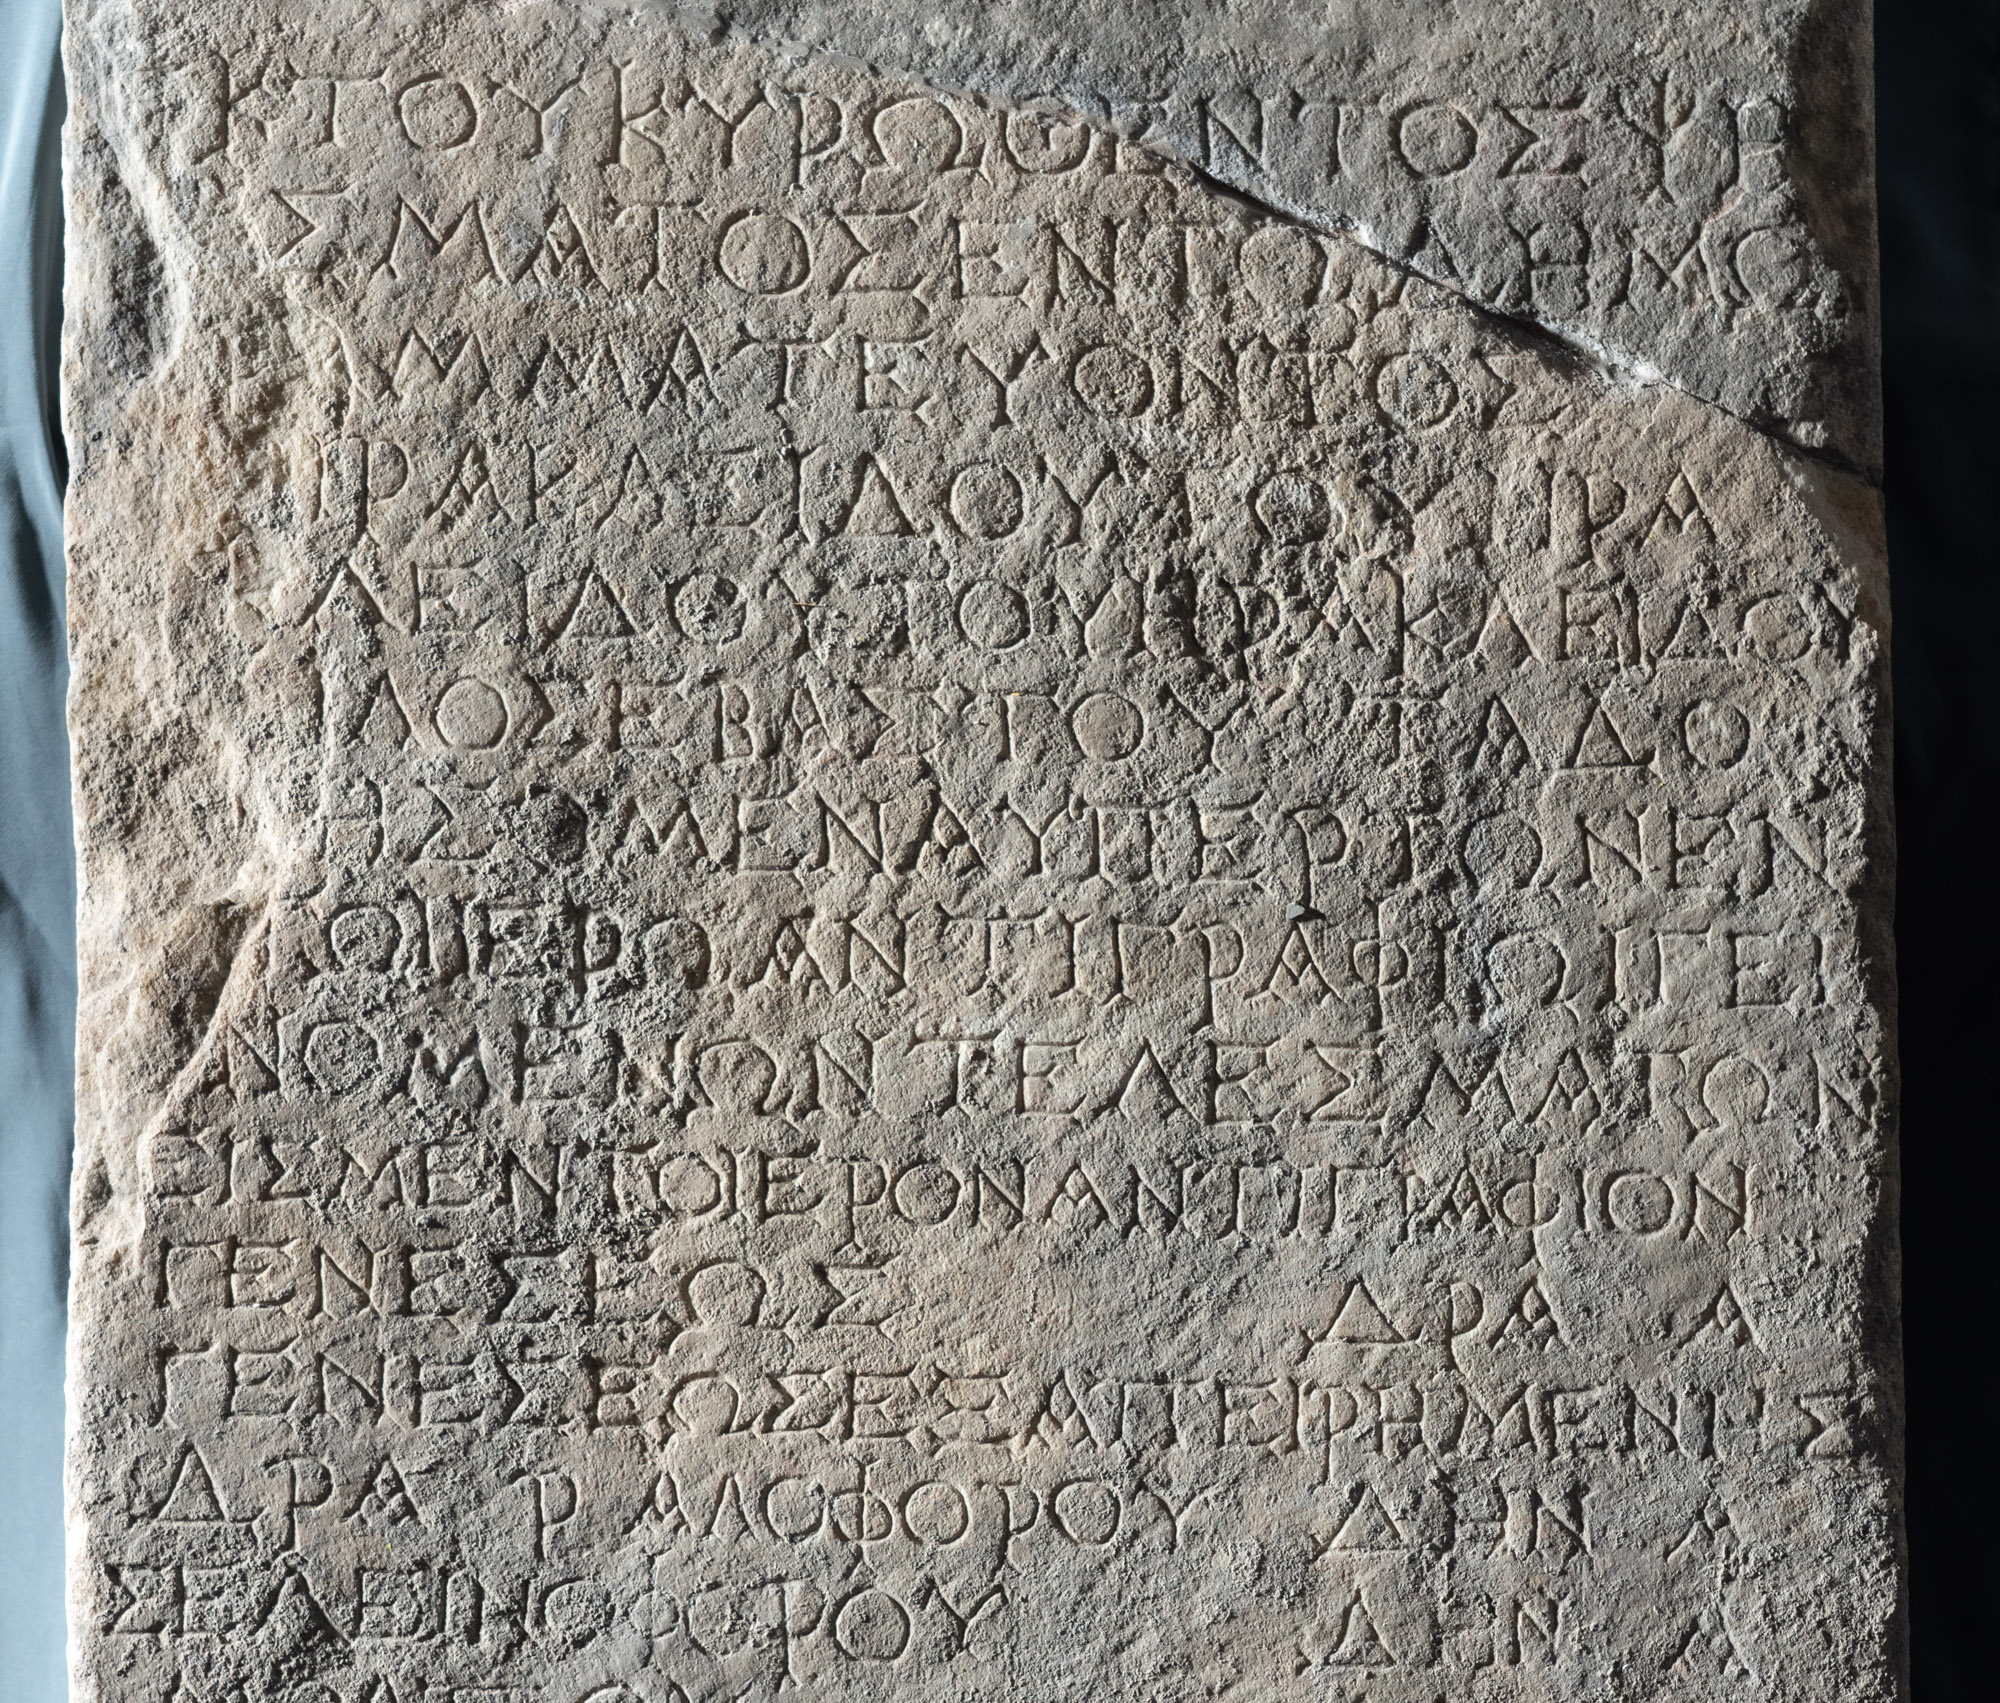 ΚΤΟΥΚΥΡΩΘΕΝΤΟΣΨΗ
ΣΜΑΤΟΣΕΝΤΩΙΔΗΜΩ
ΑΜΜΑΤΕΥΟΝΤΟΣ
ΗΡΑΚΛΕΙΔΟΥΤΟΥΗΡΑ
ΛΕΙΔΟΥΤΟΥΗΡΑΚΛΕΙΔΟΥ
ΛΟΣΕΒΑΣΤΟΥΤΑΔΟ
ΗΣΟΜΕΝΑΥΠΕΡΤΩΝΕΝ
ΤΩΙΙΕΡΩΑΝΤΙΓΡΑΦΙΩΙΓΕΙ
ΝΟΜΕΝΩΝΤΕΛΕΣΜΑΤΩΝ
ΕΙΣΜΕΝΤΟΙΕΡΟΝΑΝΤΙΓΡΑΦΙΟΝ
ΓΕΝΕΣΕΩΣ ΔΡΑ Α
ΓΕΝΕΣΕΩΣΕΞΑΠΕΙΡΗΜΕΝΗΣ
ΔΡΑ Ρ ΑΛΟΦΟΡΟΥ ΔΗΝ Α
ΣΕΛΕΙΝΟΦΟΡΟΥ ΔΗΝ Α